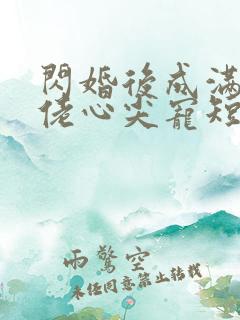 閃婚後成滿
佬心尖寵短
雨驚空
未經同意禁止轉載